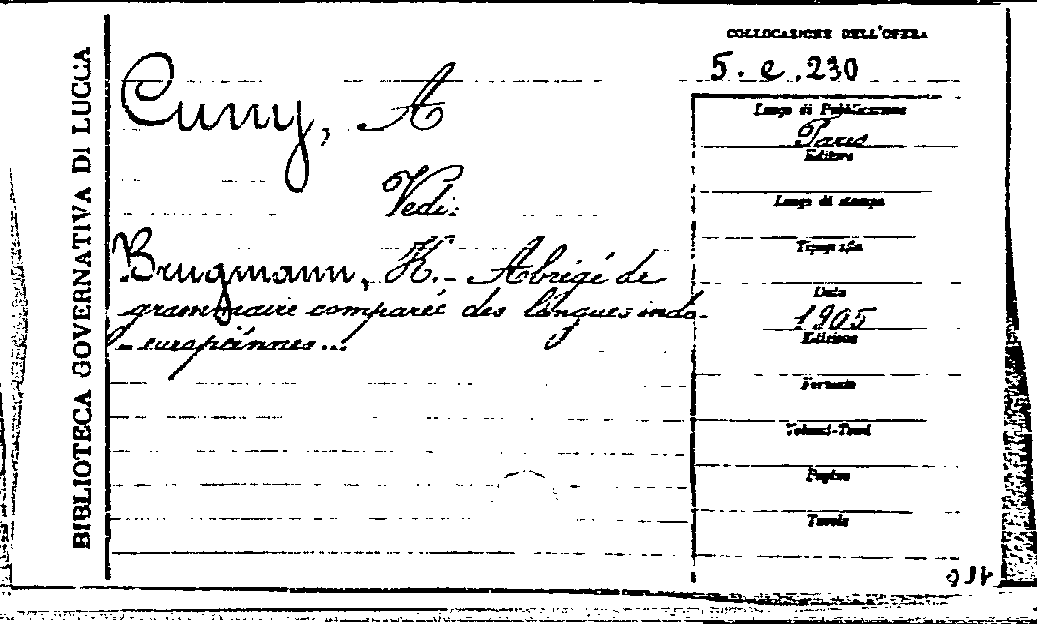 BIBLIOTECA GOVERNATIVA DI LUCCA
Cuny, A
Vedi:
Brugmann, K. - Abrigé de
grammaire comparée des langues indo-
-européennes...
COLLOCAZIONE DELL'OPERA
5. e. 230
Luogo di Pubblicazione
Paris
Editore
Luogo di stampa
Tipografia
Data
1905
Edizione
Formato
Volumi-Tomi
Pagine
Tavole